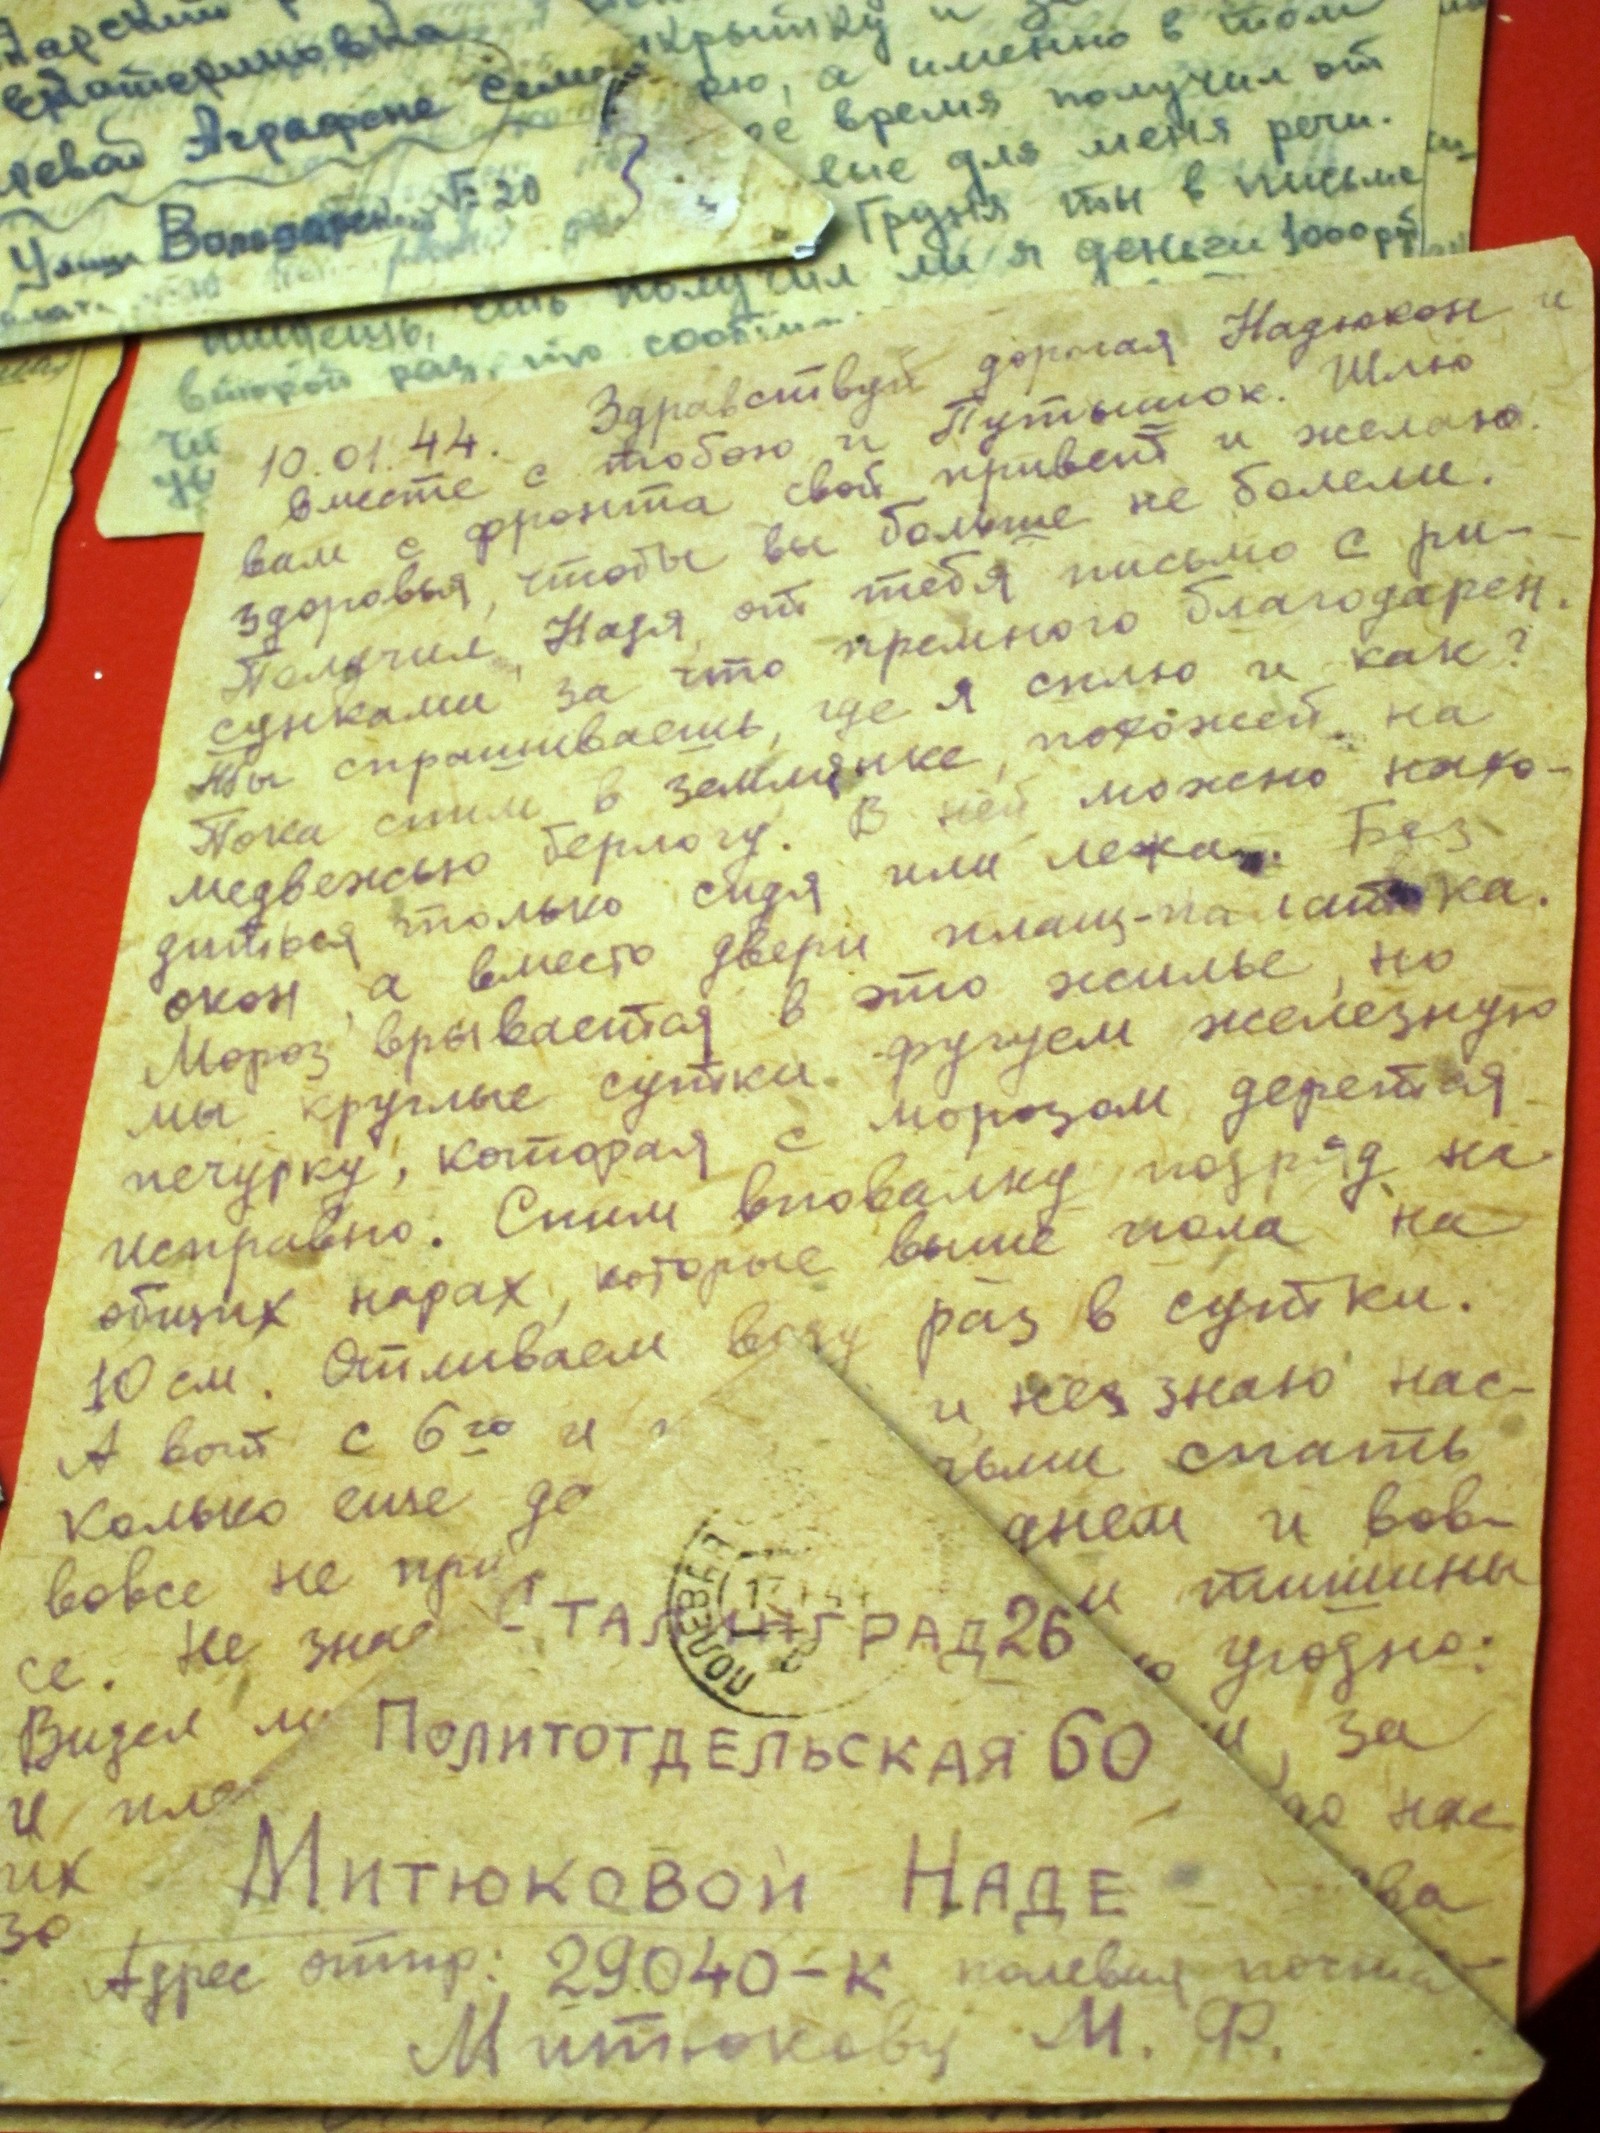 Екатериновка
Аграфене
Улица Володарск № 20
крытку и
рю, а именно в том
время получил от
для меня речи.
Груня ты в письме
пишешь, получил ли я деньги 1000 руб
второй раз, то
10.01.44. Здравствуй дорогая Надюкон и
вместе с тобою и Путышок. Шлю
вам с фронта свой привет и желаю
здоровья, чтобы вы больше не болели.
Получил, Надя, от тебя письмо с ри-
сунками за что премного благодарен.
Ты спрашиваешь, где я сплю и как?
Пока спим в землянке, похожей на
медвежью берлогу. В ней можно нахо-
диться только сидя или лежа. Без
окон, а вместо двери плащ-палатка.
Мороз врывается в это жилье, но
мы круглые сутки фугуем железную
печурку, которая с морозом дерется
исправно. Спим вповалку подряд на
общих нарах, которые выше пола на
10 см. Отливаем воду раз в сутки.
А вот с 6го и и не знаю нас-
колько еще до чьми спать
вовсе не при днем и вов-
се. Не знаю и тишины
Видел ли угодно:
и пле и, за
их до нас
за ва
ПОЛЕВАЯ
СТАЛИНГРАД 26
ПОЛИТОТДЕЛЬСКАЯ 60
МИТЮКОВОЙ НАДЕ
Адрес отпр: 29040-К полевая почта
Митюкову М. Ф.